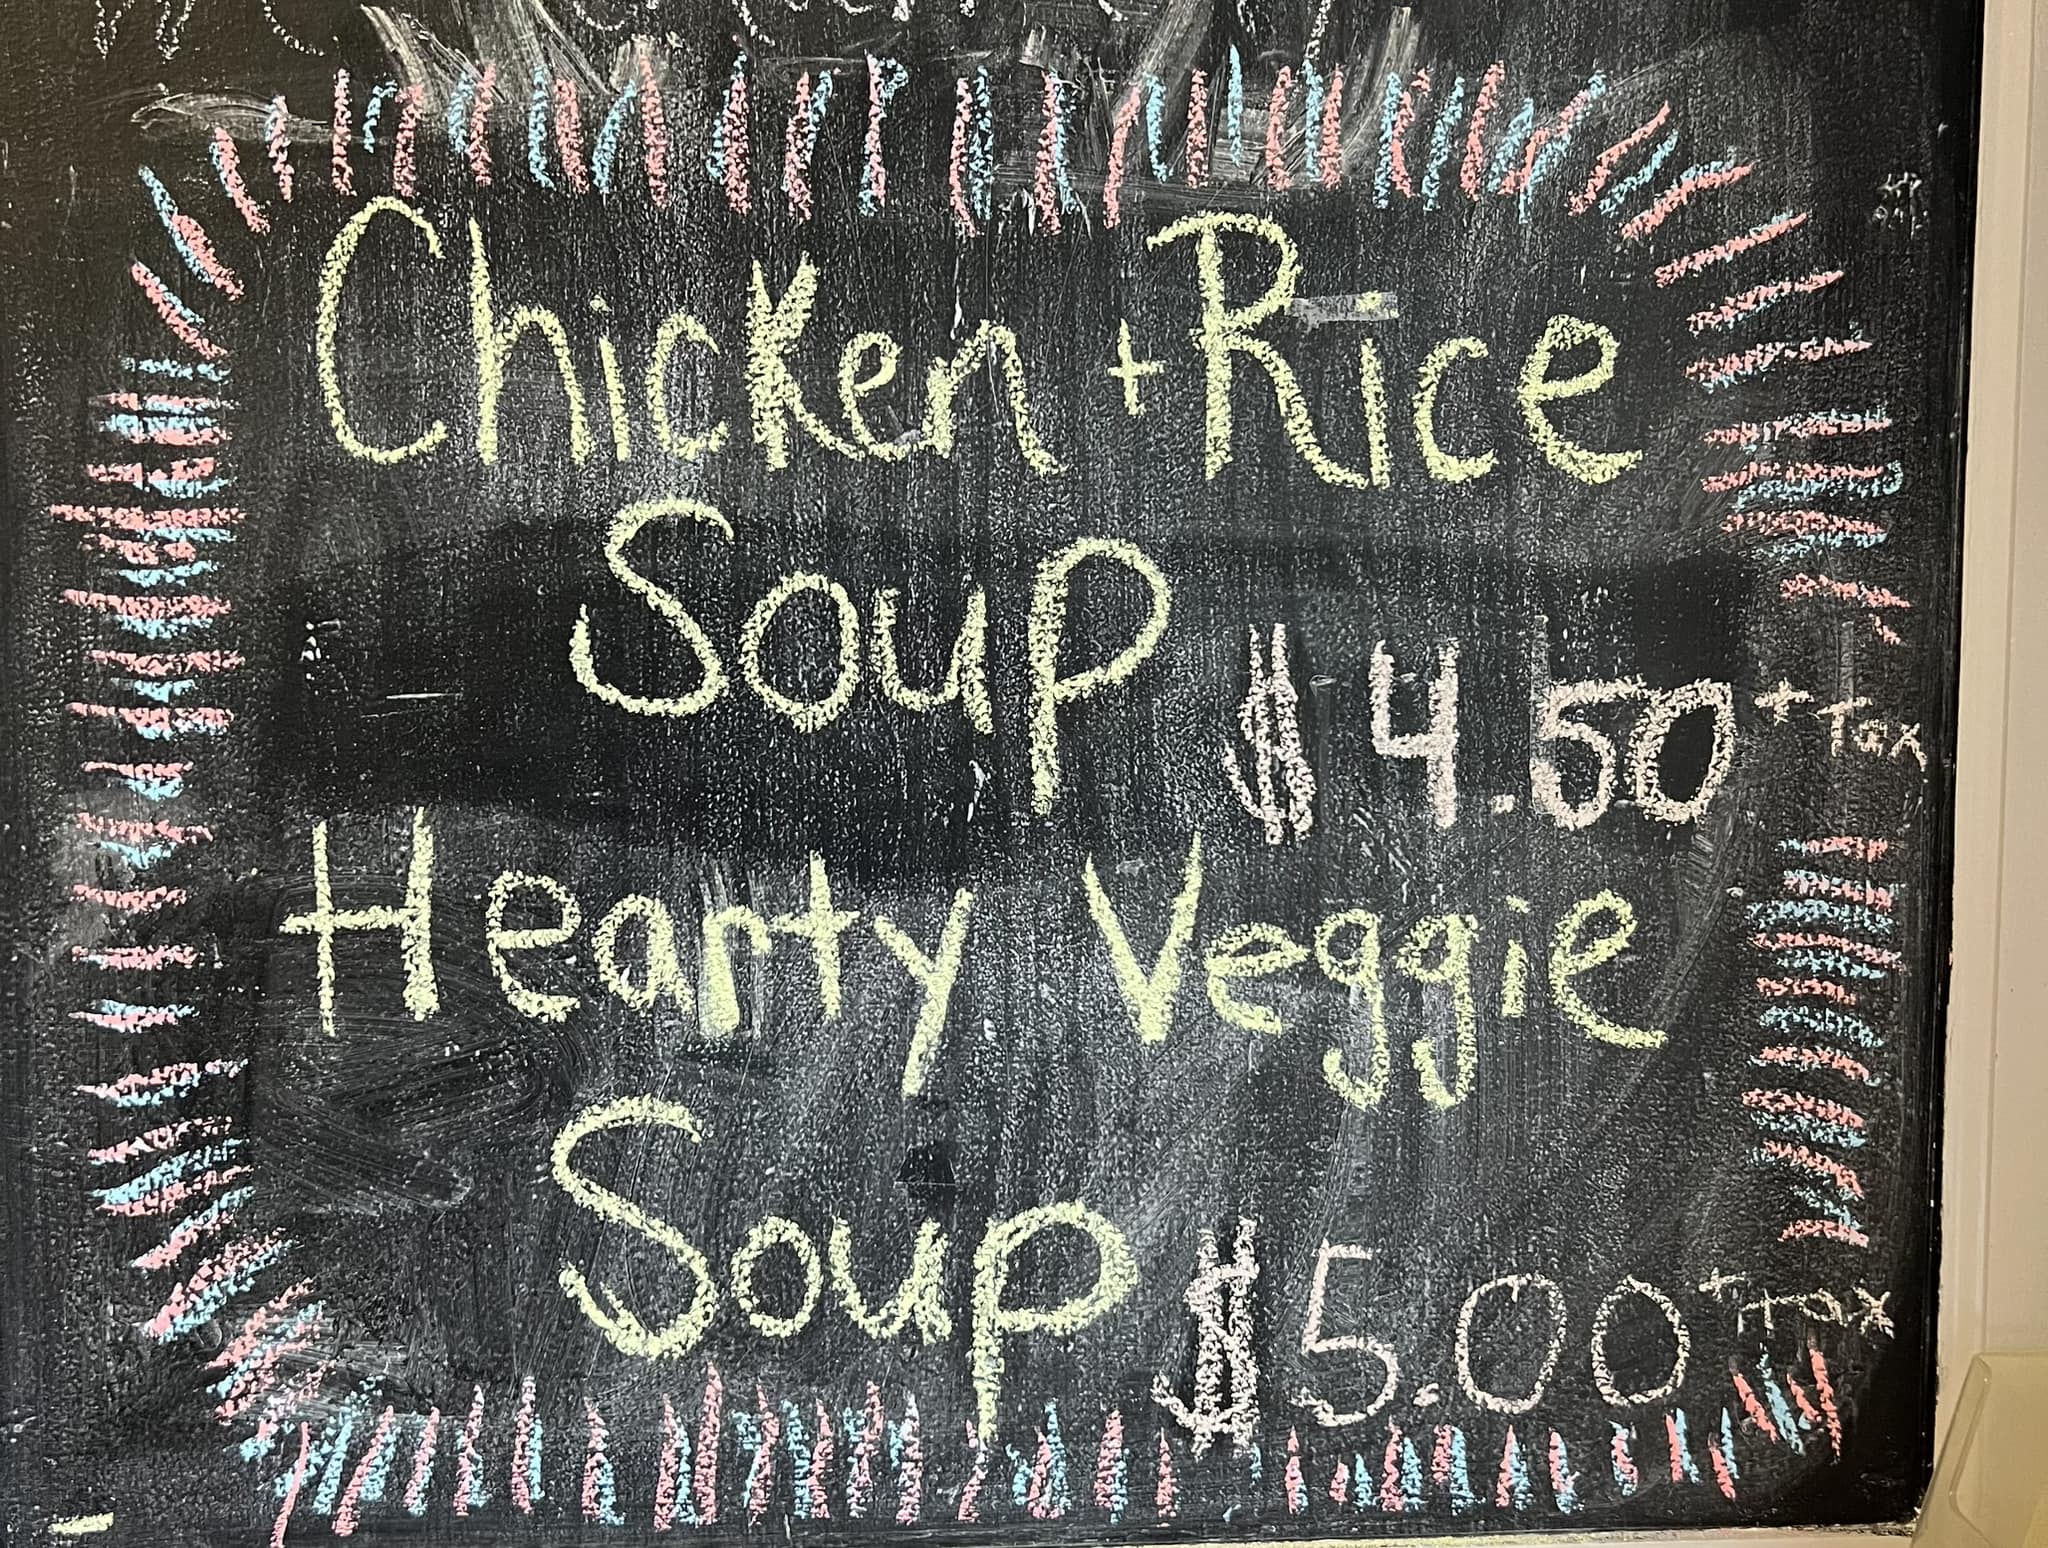 Chicken + Rice
Soup $4.50 + Tax
Hearty Veggie
Soup $5.00 + Tax